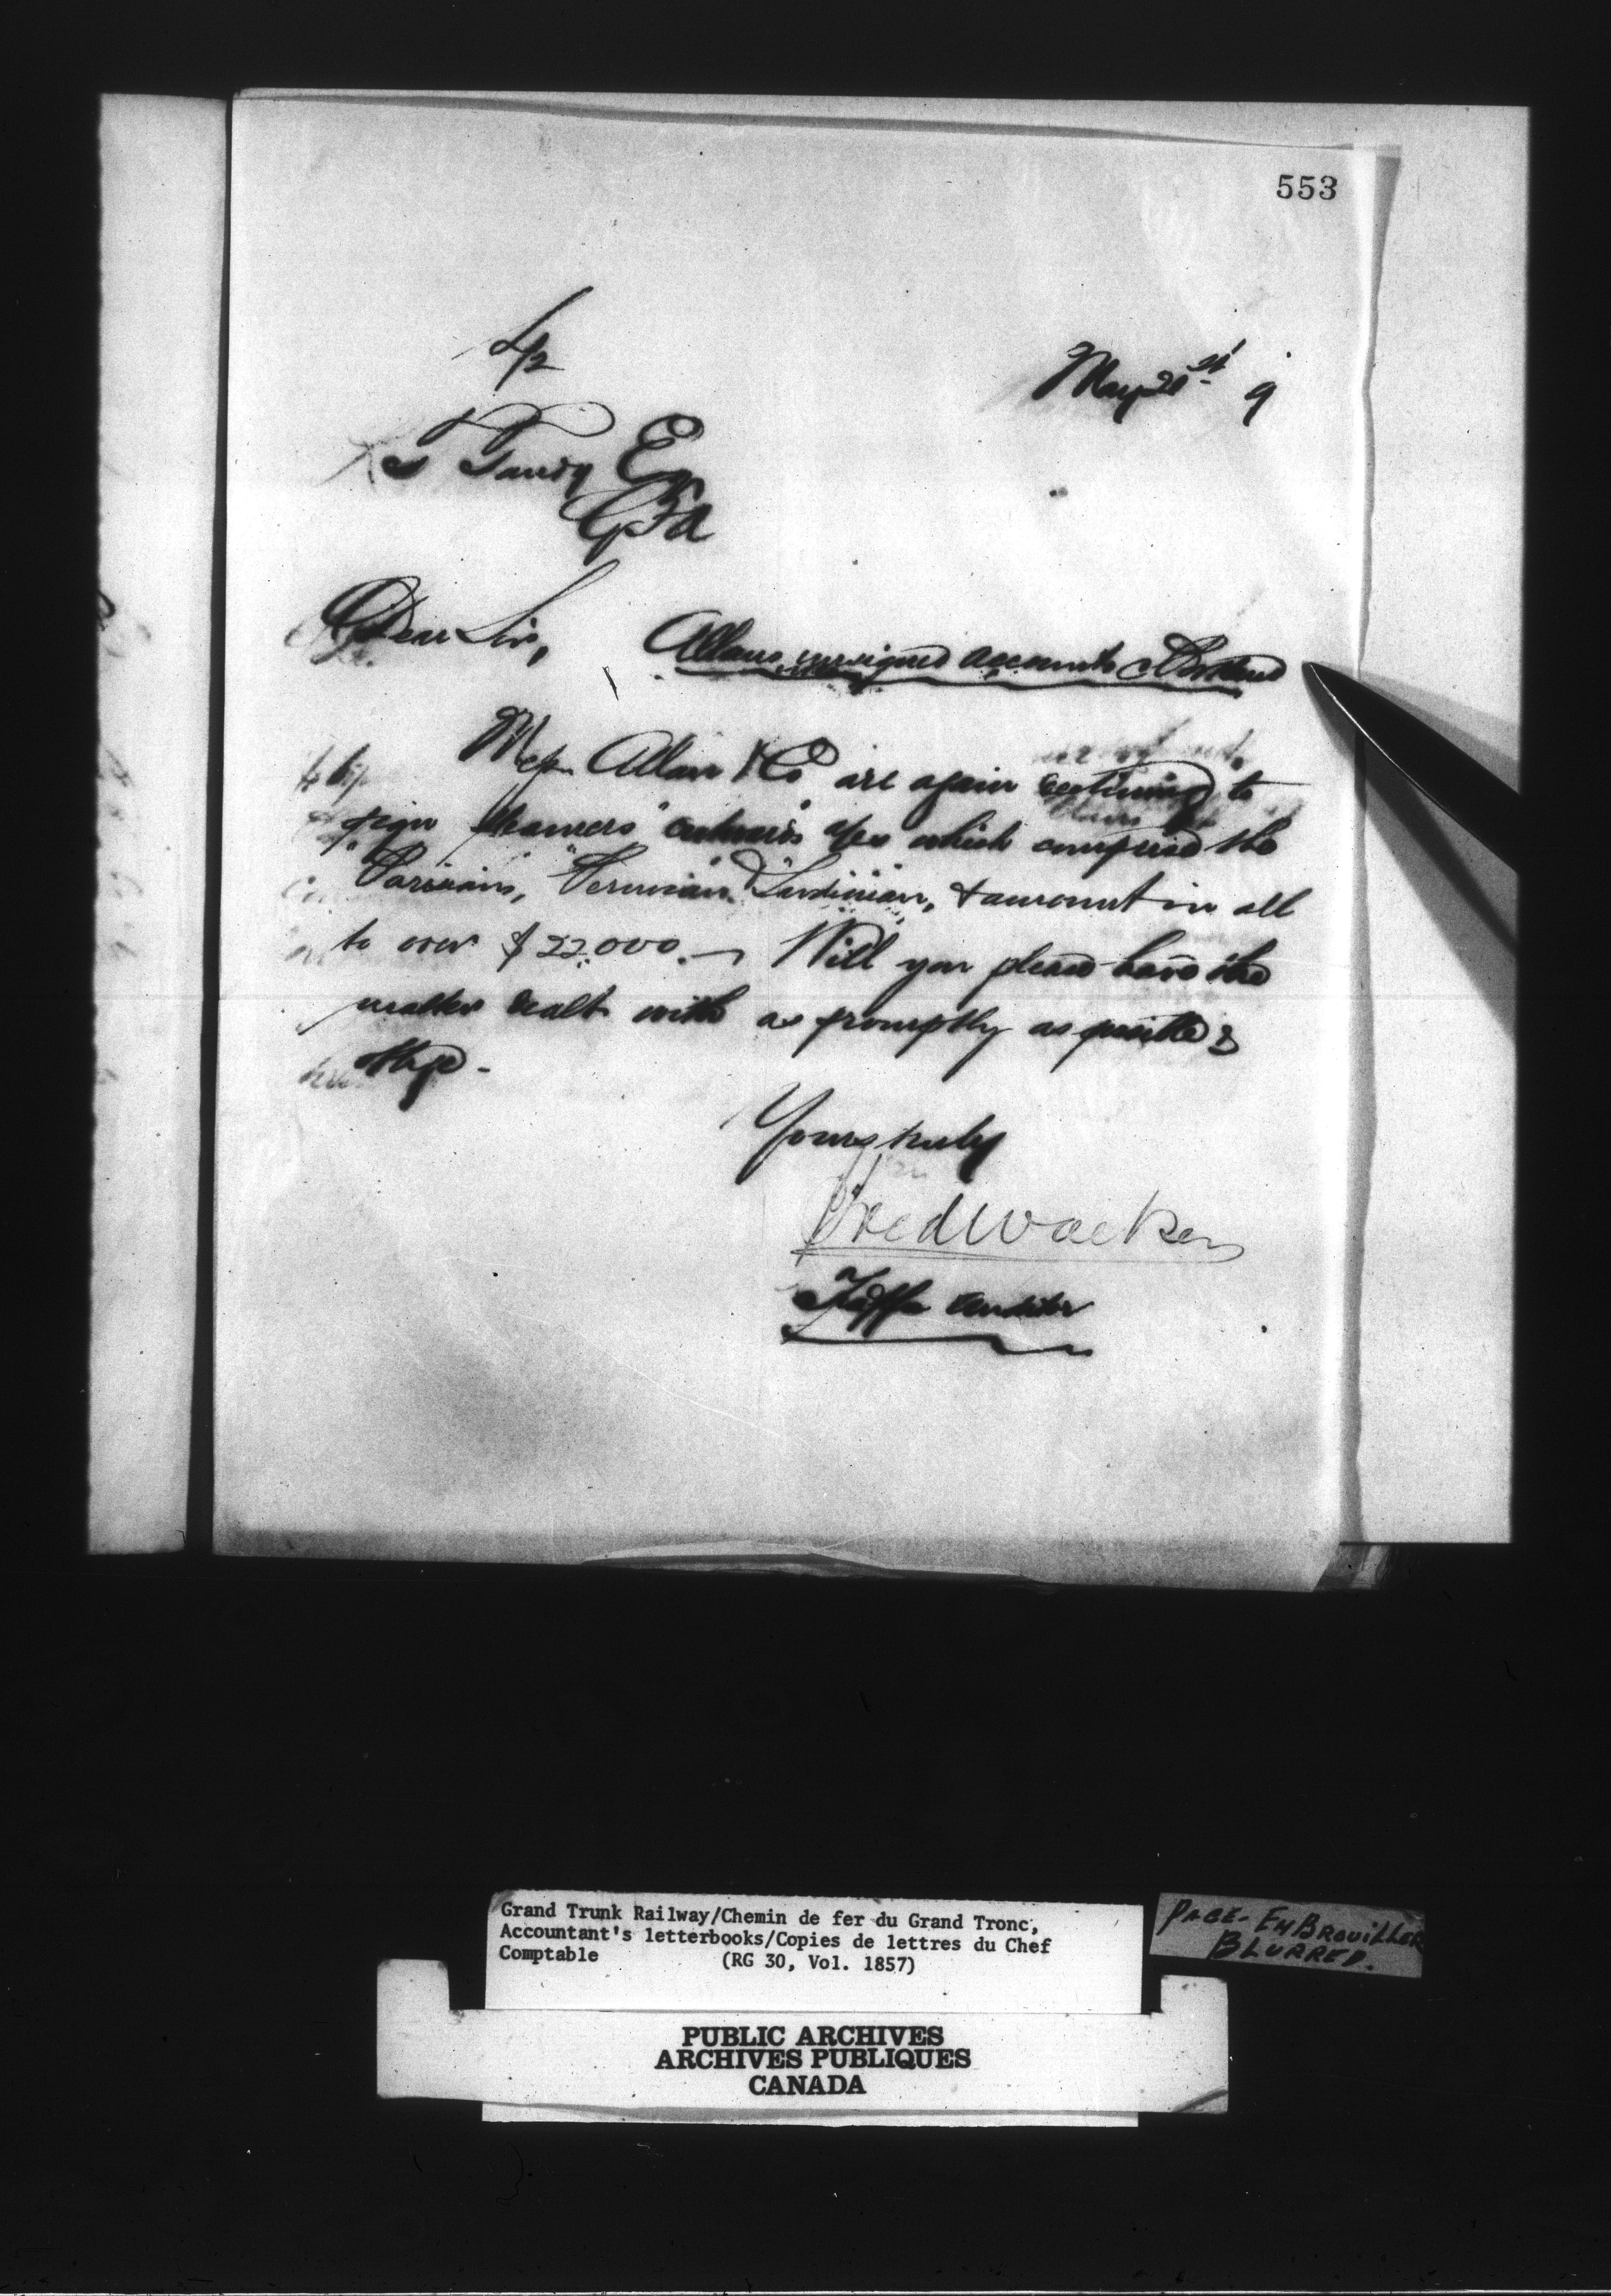 553
May 21st 9
Esq
GFA
Dear Sir,
Allans unsigned accounts Portland
Messrs Allan & Co are again to
sign steamers a/cs which comprise the
"Parisian," "Peruvian" & "Sardinian," & amount in all
to over $22.000. — Will you please have the
matter dealt with as promptly as possible &
Yours truly
Fred Walker
Traffic Auditor
Grand Trunk Railway/Chemin de fer du Grand Tronc,
Accountant's letterbooks/Copies de lettres du Chef
Comptable (RG 30, Vol. 1857)
PAGE - EMBROUILLER
BLURRED.
PUBLIC ARCHIVES
ARCHIVES PUBLIQUES
CANADA